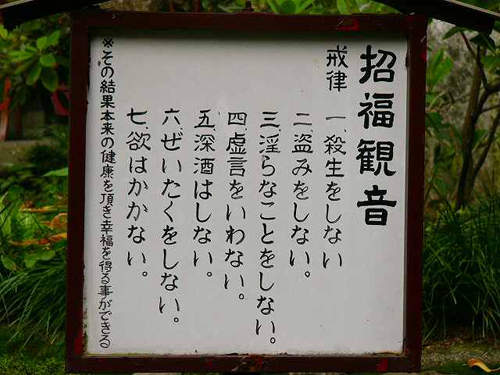 招福観音
戒律
一、殺生をしない
二、盗みをしない。
三、淫らなことをしない。
四、虚言をいわない。
五、深酒はしない。
六、ぜいたくをしない。
七、欲はかかない。
※その結果本来の健康を頂き幸福を得る事ができる